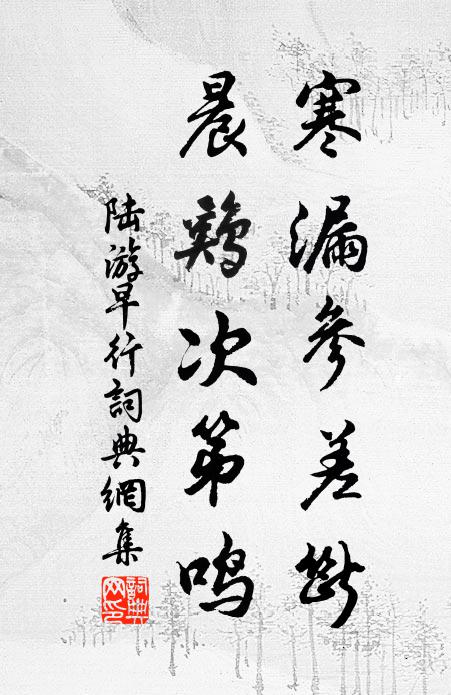 寒漏參差斷
晨鷄次第鸣
陆游早行詞典網集
詞典